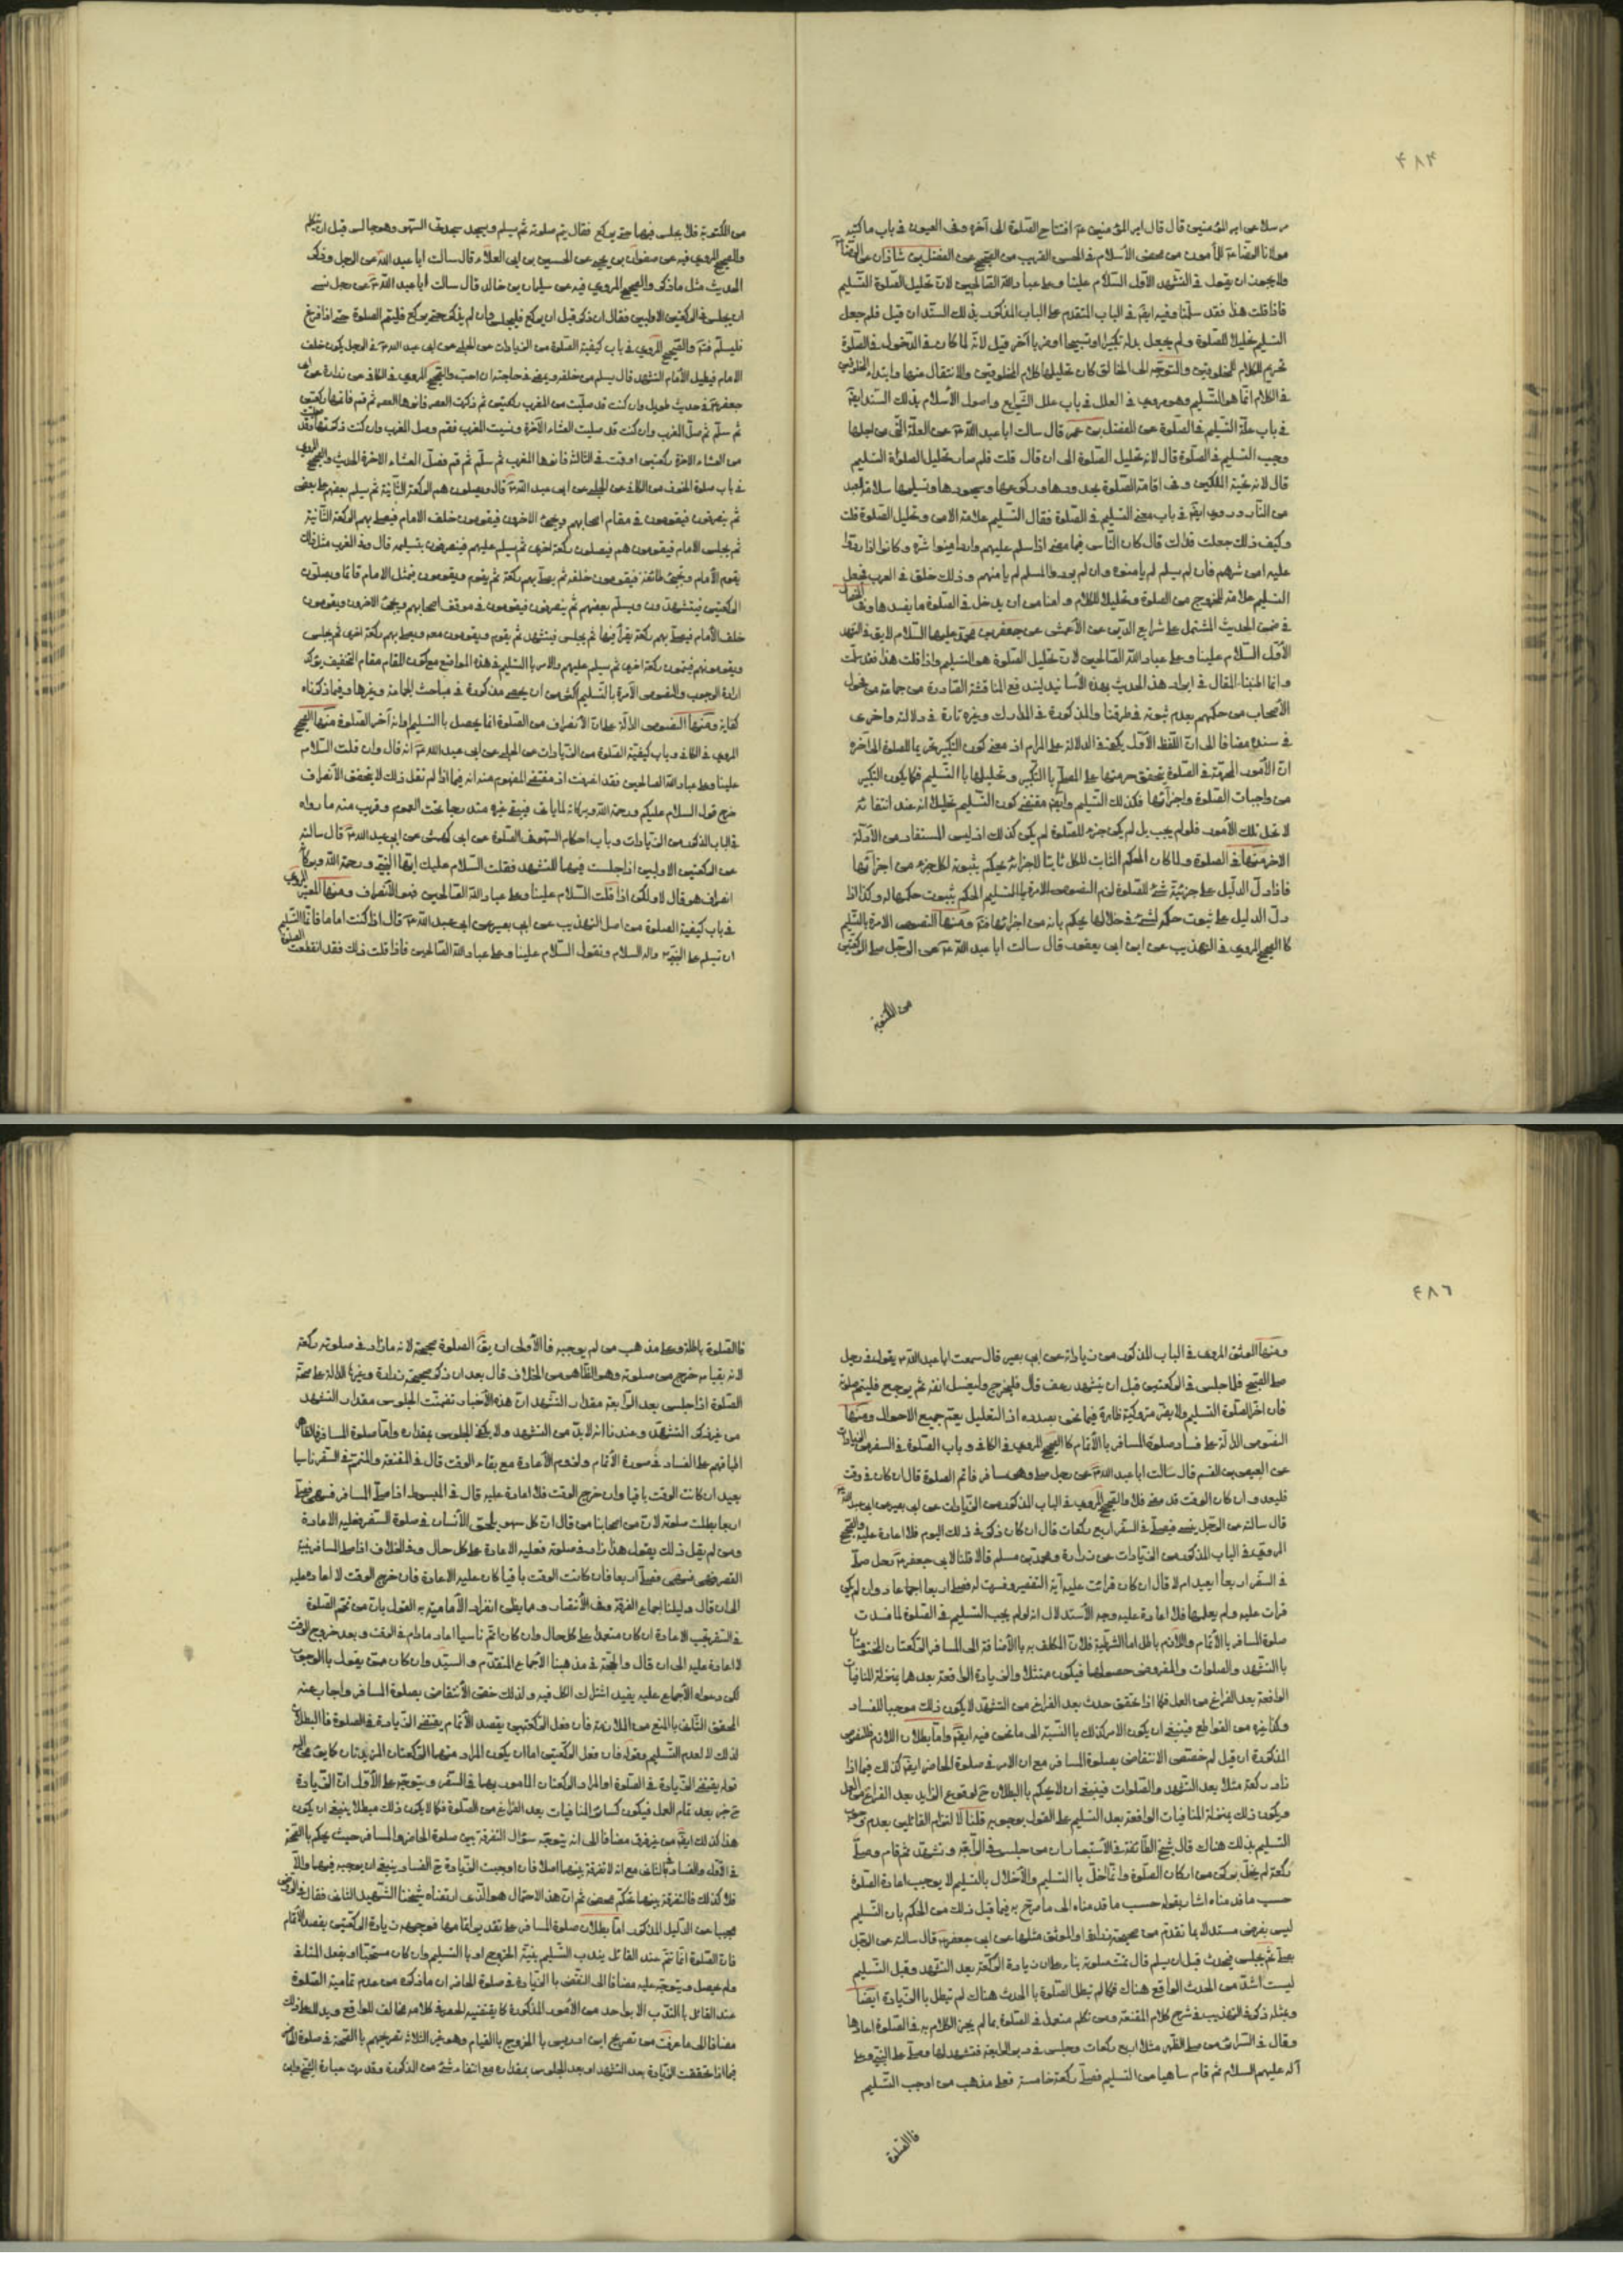 ۴۸۴
مرسلا عن امير المؤمنين قال قال امير المؤمنين ع افتتاح الصلوة الى آخره وفى العيون فى باب ما كتبه
مولانا الرضا ع للمأمون من محض الأسلام فى الحسن القريب من الصحيح عن الفضل بن شاذان عن الرضا
ولا يجوز ان يقول فى التشهد الاول السلام علينا وعلى عباد الله الصالحين لان تحليل الصلوة التسليم
فاذا قلت هذا فقد سلمت وفيه ايضا فى الباب المتقدم على الباب المذكور بذلك السند ان قيل فلم جعل
التسليم تحليلا للصلوة ولم يجعل بدله تكبيرا او تسبيحا او ضربا آخر قيل لانه لما كان فى الدخول فى الصلوة
تحريم الكلام للمخلوقين والتوجه الى الخالق كان تحليلها كلام المخلوقين والانتقال منها وابتداء المخلوقين
فى الكلام انما هو التسليم وهو مروى فى العلل فى باب علل الشرايع واصول الأسلام بذلك السند ايضا
فى باب علة التسليم فى الصلوة عن المفضل بن عمر قال سالت ابا عبد الله ع عن العلة التى من اجلها
وجب التسليم فى الصلوة قال لانه تحليل الصلوة الى ان قال قلت فلم صار تحليل الصلوة التسليم
قال لانه تحية الملكين وفى اقامة الصلوة بحدودها وركوعها وسجودها وتسليمها سلامة للعبد
من النار وروى ايضا فى باب معنى التسليم فى الصلوة فقال التسليم علامة الامن وتحليل الصلوة قلت
وكيف ذلك جعلت فداك قال كان الناس فيما مضى اذا سلم عليهم وارد امنوا شره وكانوا اذا ردوا
عليه امن شرهم فان لم يسلم لم يأمنوه وان لم يردوا على المسلم لم يامنهم وذلك خلق فى العرب فجعل
التسليم علامة للخروج من الصلوة وتحليلا للكلام وامنا من ان يدخل فى الصلوة ما يفسدها وفى الخصال
فى ضمن الحديث المشتمل على شرايع الدين عن الأعمش عن جعفر بن محمد عليهما السلام لا يق فى التشهد
الأول السلام علينا وعلى عباد الله الصالحين لان تحليل الصلوة هو التسليم واذا قلت هذا فقد سلمت
وانما اطنبنا المقال فى ايراد هذا الحديث بهذه الأسانيد ليندفع المناقشة الصادرة من جماعة من فحول
الأصحاب من حكمهم بعدم ثبوته فى طرقنا والمذكورة فى المدارك وغيره تارة فى دلالته واخرى
فى سنده مضافا الى ان اللفظ الأول يكفى فى الدلالة على المرام اذ معنى كون التكبير تحريما للصلوة الى آخره
ان الأمور المحرمة فى الصلوة تتحقق حرمتها على المصلى بالتكبير وتحليلها بالتسليم فكما يكون التكبير
من واجبات الصلوة واجزائها فكذلك التسليم وايضا مقتضى كون التسليم تحليلا انه عند انتفائه
لا تحل تلك الأمور فلو لم يجب بل لم يكن جزء للصلوة لم يكن كذلك اذ ليس المستفاد من الأدلة
الاخر منها فى الصلوة ولما كان الحكم الثابت للكل ثابتا لأجزائه يحكم بثبوته لكل جزء من اجزائها
فاذا دل الدليل على جزئية شئ للصلوة لزم الحكم بثبوت حكمها له وكذا اذا
دل الدليل على ثبوت حكم لشئ فى خلالها يحكم بانه من اجزائها ومنها النصوص الامرة بالتسليم
كالصحيح المروى فى التهذيب عن ابن ابى يعفور قال سالت ابا عبد الله ع عن الرجل يصلى الركعتين
من المكتوبة
من المكتوبة فلا يجلس فيهما حتى يركع فقال يتم صلوته ثم يسلم ويسجد سجدتى السهو وهو جالس قبل ان يتكلم
والصحيح المروى فيه عن صفوان بن يحيى عن الحسين بن ابى العلاء قال سالت ابا عبد الله ع عن الرجل وذكر
الحديث مثل ما ذكر والصحيح المروى فيه عن سليمان بن خالد قال سالت ابا عبد الله ع عن رجل نسى
ان يجلس فى الركعتين الاوليين فقال ان ذكر قبل ان يركع فليجلس وان لم يذكر حتى يركع فليتم الصلوة حتى اذا فرغ
فليسلم والصحيح المروى فى باب كيفية الصلوة من الزيادات عن الحلبى عن ابى عبد الله ع فى الرجل يكون خلف
الامام فيطيل الأمام التشهد قال يسلم من خلفه ويمضى فى حاجته ان احب والصحيح المروى فى الكافى عن زرارة عن ابى
جعفر ع فى حديث طويل وان كنت قد صليت من المغرب ركعتين ثم ذكرت العصر فانوها العصر ثم قم فاتمها ركعتين
ثم سلم ثم صل المغرب وان كنت قد صليت العشاء الآخرة ونسيت المغرب فقم وصل المغرب وان كنت ذكرتها وقد صليت
من العشاء الاخرة ركعتين او قمت فى الثالثة فانوها المغرب ثم سلم ثم قم فصل العشاء الاخرة الحديث والصحيح المروى
فى باب صلوة الخوف من الكافى عن الحلبى عن ابى عبد الله ع قال ويصلون هم الركعة الثانية ثم يسلم بعضهم على بعض
ثم ينصرفون فيقومون فى مقام اصحابهم ويجئ الاخرون فيقومون خلف الامام فيصلى بهم الركعة الثانية
ثم يجلس الامام فيقومون هم فيصلون ركعة اخرى ثم يسلم عليهم فينصرفون بتسليمه قال وفى المغرب مثل ذلك
يقوم الأمام وتجئ طائفة فيقومون خلفه ثم يصلى بهم ركعة ثم يقوم ويقومون فيمثل الامام قائما ويصلون
الركعتين فيتشهدون ويسلم بعضهم ثم ينصرفون فيقومون فى موقف اصحابهم ويجئ الاخرون ويقومون
خلف الأمام فيصلى بهم ركعة يقرأ فيها ثم يجلس فيتشهد ثم يقوم ويقومون معه ويصلى بهم ركعة اخرى ثم يجلس
ويقومون هم فيتمون ركعة اخرى ثم يسلم عليهم والامر بالتسليم فى هذه المواضع مع كون المقام مقام التخفيف يؤكد
ارادة الوجوب والنصوص الآمرة بالتسليم اكثر من ان يحصى مذكورة فى مباحث الجماعة وغيرها وفيما ذكرناه
كفاية ومنها النصوص الدالة على ان الأنصراف من الصلوة انما يحصل بالتسليم او انه آخر الصلوة منها الصحيح
المروى فى الكافى وباب كيفية الصلوة من الزيادات عن الحلبى عن ابى عبد الله ع انه قال وان قلت السلام
علينا وعلى عباد الله الصالحين فقد انصرفت اذ مقتضى المفهوم منه انه فيما اذا لم تقل ذلك لا يتحقق الأنصراف
خرج قول السلام عليكم ورحمة الله وبركاته لما يأتى فيبقى غيره مندرجا تحت العموم وقريب منه ما رواه
فى الباب المذكور من الزيادات وباب احكام السهو فى الصلوة عن ابى كهمش عن ابى عبد الله ع قال سالته
عن الركعتين الاوليين اذا جلست فيهما للتشهد فقلت السلام عليك ايها النبى ورحمة الله وبركاته
انصراف هو قال لا ولكن اذا قلت السلام علينا وعلى عباد الله الصالحين فهو الأنصراف ومنها المعتبر المروى
فى باب كيفية الصلوة من اصل التهذيب عن ابى بصير عن ابى عبد الله ع قال اذا كنت اماما فانما التسليم
ان تسلم على النبى عليه واله السلام وتقول السلام علينا وعلى عباد الله الصالحين فاذا قلت ذلك فقد انقطعت الصلوة
۴۸٦
ومنها الموثق المروى فى الباب المذكور من زياداته عن ابى بصير قال سمعت ابا عبد الله ع يقول فى رجل
صلى الصبح فلما جلس فى الركعتين قبل ان يتشهد رعف قال فليخرج وليغسل انفه ثم يرجع فليتم صلوته
فان اخر الصلوة التسليم ولا يضر متروكية ظاهره فيما نحن بصدده اذ التعليل يعم جميع الاحوال ومنها
النصوص الدالة على فساد صلوة المسافر بالأتمام كالصحيح المروى فى الكافى وباب الصلوة فى السفر من الزيادات
عن العيص بن القسم قال سالت ابا عبد الله ع عن رجل صلى وهو مسافر فاتم الصلوة قال ان كان فى وقت
فليعد وان كان الوقت قد مضى فلا والصحيح المروى فى الباب المذكور من الزيادات عن ابى بصير عن ابى عبد الله ع
قال سالته عن الرجل ينسى فيصلى فى السفر اربع ركعات قال ان كان ذكر فى ذلك اليوم فلا اعادة عليه والصحيح
المروى فى الباب المذكور من الزيادات عن زرارة ومحمد بن مسلم قالا قلنا لابى جعفر ع رجل صلى
فى السفر اربعا ايعيد ام لا قال ان كان قرئت عليه آية التقصير وفسرت له فصلى اربعا اعاد وان لم يكن
قرأت عليه ولم يعلمها فلا اعادة عليه وجه الأستدلال انه لو لم يجب التسليم فى الصلوة لما فسدت
صلوة المسافر بالأتمام واللازم باطل اما الشرطية فلان المكلف به بالأضافة الى المسافر الركعتان المختومتان
بالتشهد والصلوات والمفروض حصولها فيكون ممتثلا والزيادة الواقعة بعدها بمنزلة المنافيات
الواقعة بعد الفراغ من العمل فكما اذا تحقق حدث بعد الفراغ من التشهد لا يكون ذلك موجبا للفساد
وكذا غيره من القواطع فينبغى ان يكون الامر كذلك بالنسبة الى ما نحن فيه ايضا واما بطلان اللازم فللنصوص
المذكورة ان قيل لم خصص الانتقاض بصلوة المسافر مع ان الامر فى صلوة الحاضر ايضا كذلك فيما اذا
زاد ركعة مثلا بعد التشهد والصلوات فينبغى ان لا يحكم بالبطلان ح لوقوع الزايد بعد الفراغ من العمل
ويكون ذلك بمنزلة المنافيات الواقعة بعد التسليم على القول بوجوبه قلنا لالتزام القائلين بعدم وجوب
التسليم بذلك هناك قال شيخ الطائفة فى الأستبصار ان من جلس فى الرابعة وتشهد ثم قام وصلى
ركعة لم يخل بركن من اركان الصلوة وانما اخل بالتسليم والأخلال بالتسليم لا يوجب اعادة الصلوة
حسب ما قدمناه اشار بقوله حسب ما قدمناه الى ما صرح به فيما قبل ذلك من الحكم بان التسليم
ليس بفرض مستدلا بما تقدم من صحيحة زرارة او الموثق مثلها عن ابى جعفر ع قال سالته عن الرجل
يصلى ثم يجلس فيحدث قبل ان يسلم قال تمت صلوته بناء على ان زيادة الركعة بعد التشهد وقبل التسليم
ليست اشد من الحدث الواقع هناك فكما لم تبطل الصلوة بالحدث هناك لم تبطل بالزيادة ايضا
ومثله ذكر فى التهذيب فى شرح كلام المقنعة ومن تكلم متعمدا فى الصلوة بما لم يجز الكلام به فى الصلوة اعادها
وقال فى السرائر من صلى الظهر مثلا اربع ركعات وجلس فى دبر الرابعة فتشهد لها وصلى على النبى وعلى
آله عليهم السلام ثم قام ساهيا من التسليم فصلى ركعة خامسة فعلى مذهب من اوجب التسليم
فالصلوة
فالصلوة باطلة وعلى مذهب من لم يوجبه فالأولى ان يق الصلوة صحيحة لانه ما زاد فى صلوته ركعة
لانه بقيامه خرج من صلوته وهو الظاهر من الخلاف قال بعد ان ذكر صحيحة زرارة وغيرها الدالة على صحة
الصلوة اذا جلس بعد الرابعة مقدار التشهد ان هذه الأخبار تضمنت الجلوس مقدار التشهد
من غير ذكر التشهد وعندنا انه لا بد من التشهد ولا يكفى الجلوس بمقداره واما صلوة المسافر فالظاهر
اطباقهم على الفساد فى صورة الأتمام ولزوم الأعادة مع بقاء الوقت قال فى المقنعة والمتمم فى السفر ناسيا
يعيد ان كانت الوقت باقيا وان خرج الوقت فلا اعادة عليه قال فى المبسوط اذا صلى المسافر فسهى فصلى
اربعا بطلت صلوته لان من اصحابنا من قال ان كل سهو يلحق الأنسان فى صلوة السفر فعليه الاعادة
ومن لم يقل ذلك يقول هذا زاد فى صلوته فعليه الاعادة على كل حال وفى الخلاف اذا صلى المسافر بنية
القصر فسهى فصلى اربعا فان كانت الوقت باقيا كان عليه الاعادة فان خرج الوقت لا اعادة عليه
الى ان قال دليلنا اجماع الفرقة وفى الأنتصار ومما يظن انفراد الأمامية به القول بان من تمم الصلوة
فى السفر يجب الاعادة ان كان متعمدا على كل حال وان كان اتم ناسيا اعاد مادام فى الوقت وبعد خروج الوقت
لا اعادة عليه الى ان قال والحجة فى مذهبنا الأجماع المتقدم والسيد وان كان ممن يقول بالوجوب
لكن دعواه الأجماع عليه يفيد اشتراك الكل فيه ولذلك خص الأنتقاض بصلوة المسافر واجاب عنه
المحقق الثانى بالمنع من الملازمة فان فعل الركعتين بقصد الأتمام يقتضى الزيادة فى الصلوة فالبطلان
لذلك لا لعدم التسليم وقوله فان فعل الركعتين اما ان يكون المراد منهما الركعتان المزيدتان
قوله يقتضى الزيادة فى الصلوة او المراد الركعتان المامور بهما فى السفر ويتوجه على الأول ان الزيادة
ح خبر بعد تمام العمل فيكون كسائر المنافيات بعد الفراغ من الصلوة فكما لا يكون ذلك مبطلا ينبغى ان يكون
هذا كذلك ايضا من غير فرق مضافا الى انه يتوجه سؤال التفرقة بين صلوة الحاضر والمسافر حيث يحكم بالصحة
فى الاول والفساد فى الثانى مع انه لا تفرقة بينهما اصلا فان اوجبت الزيادة ح الفساد ينبغى ان يوجبه فيهما والا
فلا كذلك فالتفرقة بينهما تحكم محض ثم ان هذا الاحتمال هو الذى ارتضاه شيخنا الشهيد الثانى فقال فى الروض
مجيبا عن الدليل المذكور اما بطلان صلوة المسافر على تقدير اتمامها فموجبه زيادة الركعتين بقصد الأتمام
فان الصلوة انما تتم عند القائل بندب التسليم بنية الخروج او بالتسليم وان كان مستحبا او بفعل المنافى
ولم يحصل ويتوجه عليه مضافا الى النقض بالزيادة فى صلوة الحاضر ان ما ذكره من عدم تمامية الصلوة
عند القائل بالندب الا بواحد من الأمور المذكورة كما يقتضيه الحصر فى كلامه مخالف للواقع ويدل على ذلك
مضافا الى ما عرفت من تصريح ابن ادريس بالخروج بالقيام وهو غير الثلاثة تصريحهم بالصحة فى صلوة الحاضر
فيما اذا تحققت الزيادة بعد التشهد او بعد الجلوس بمقداره مع انتفاء شئ من المذكورة وقد مرت عبارة الشيخ وابن